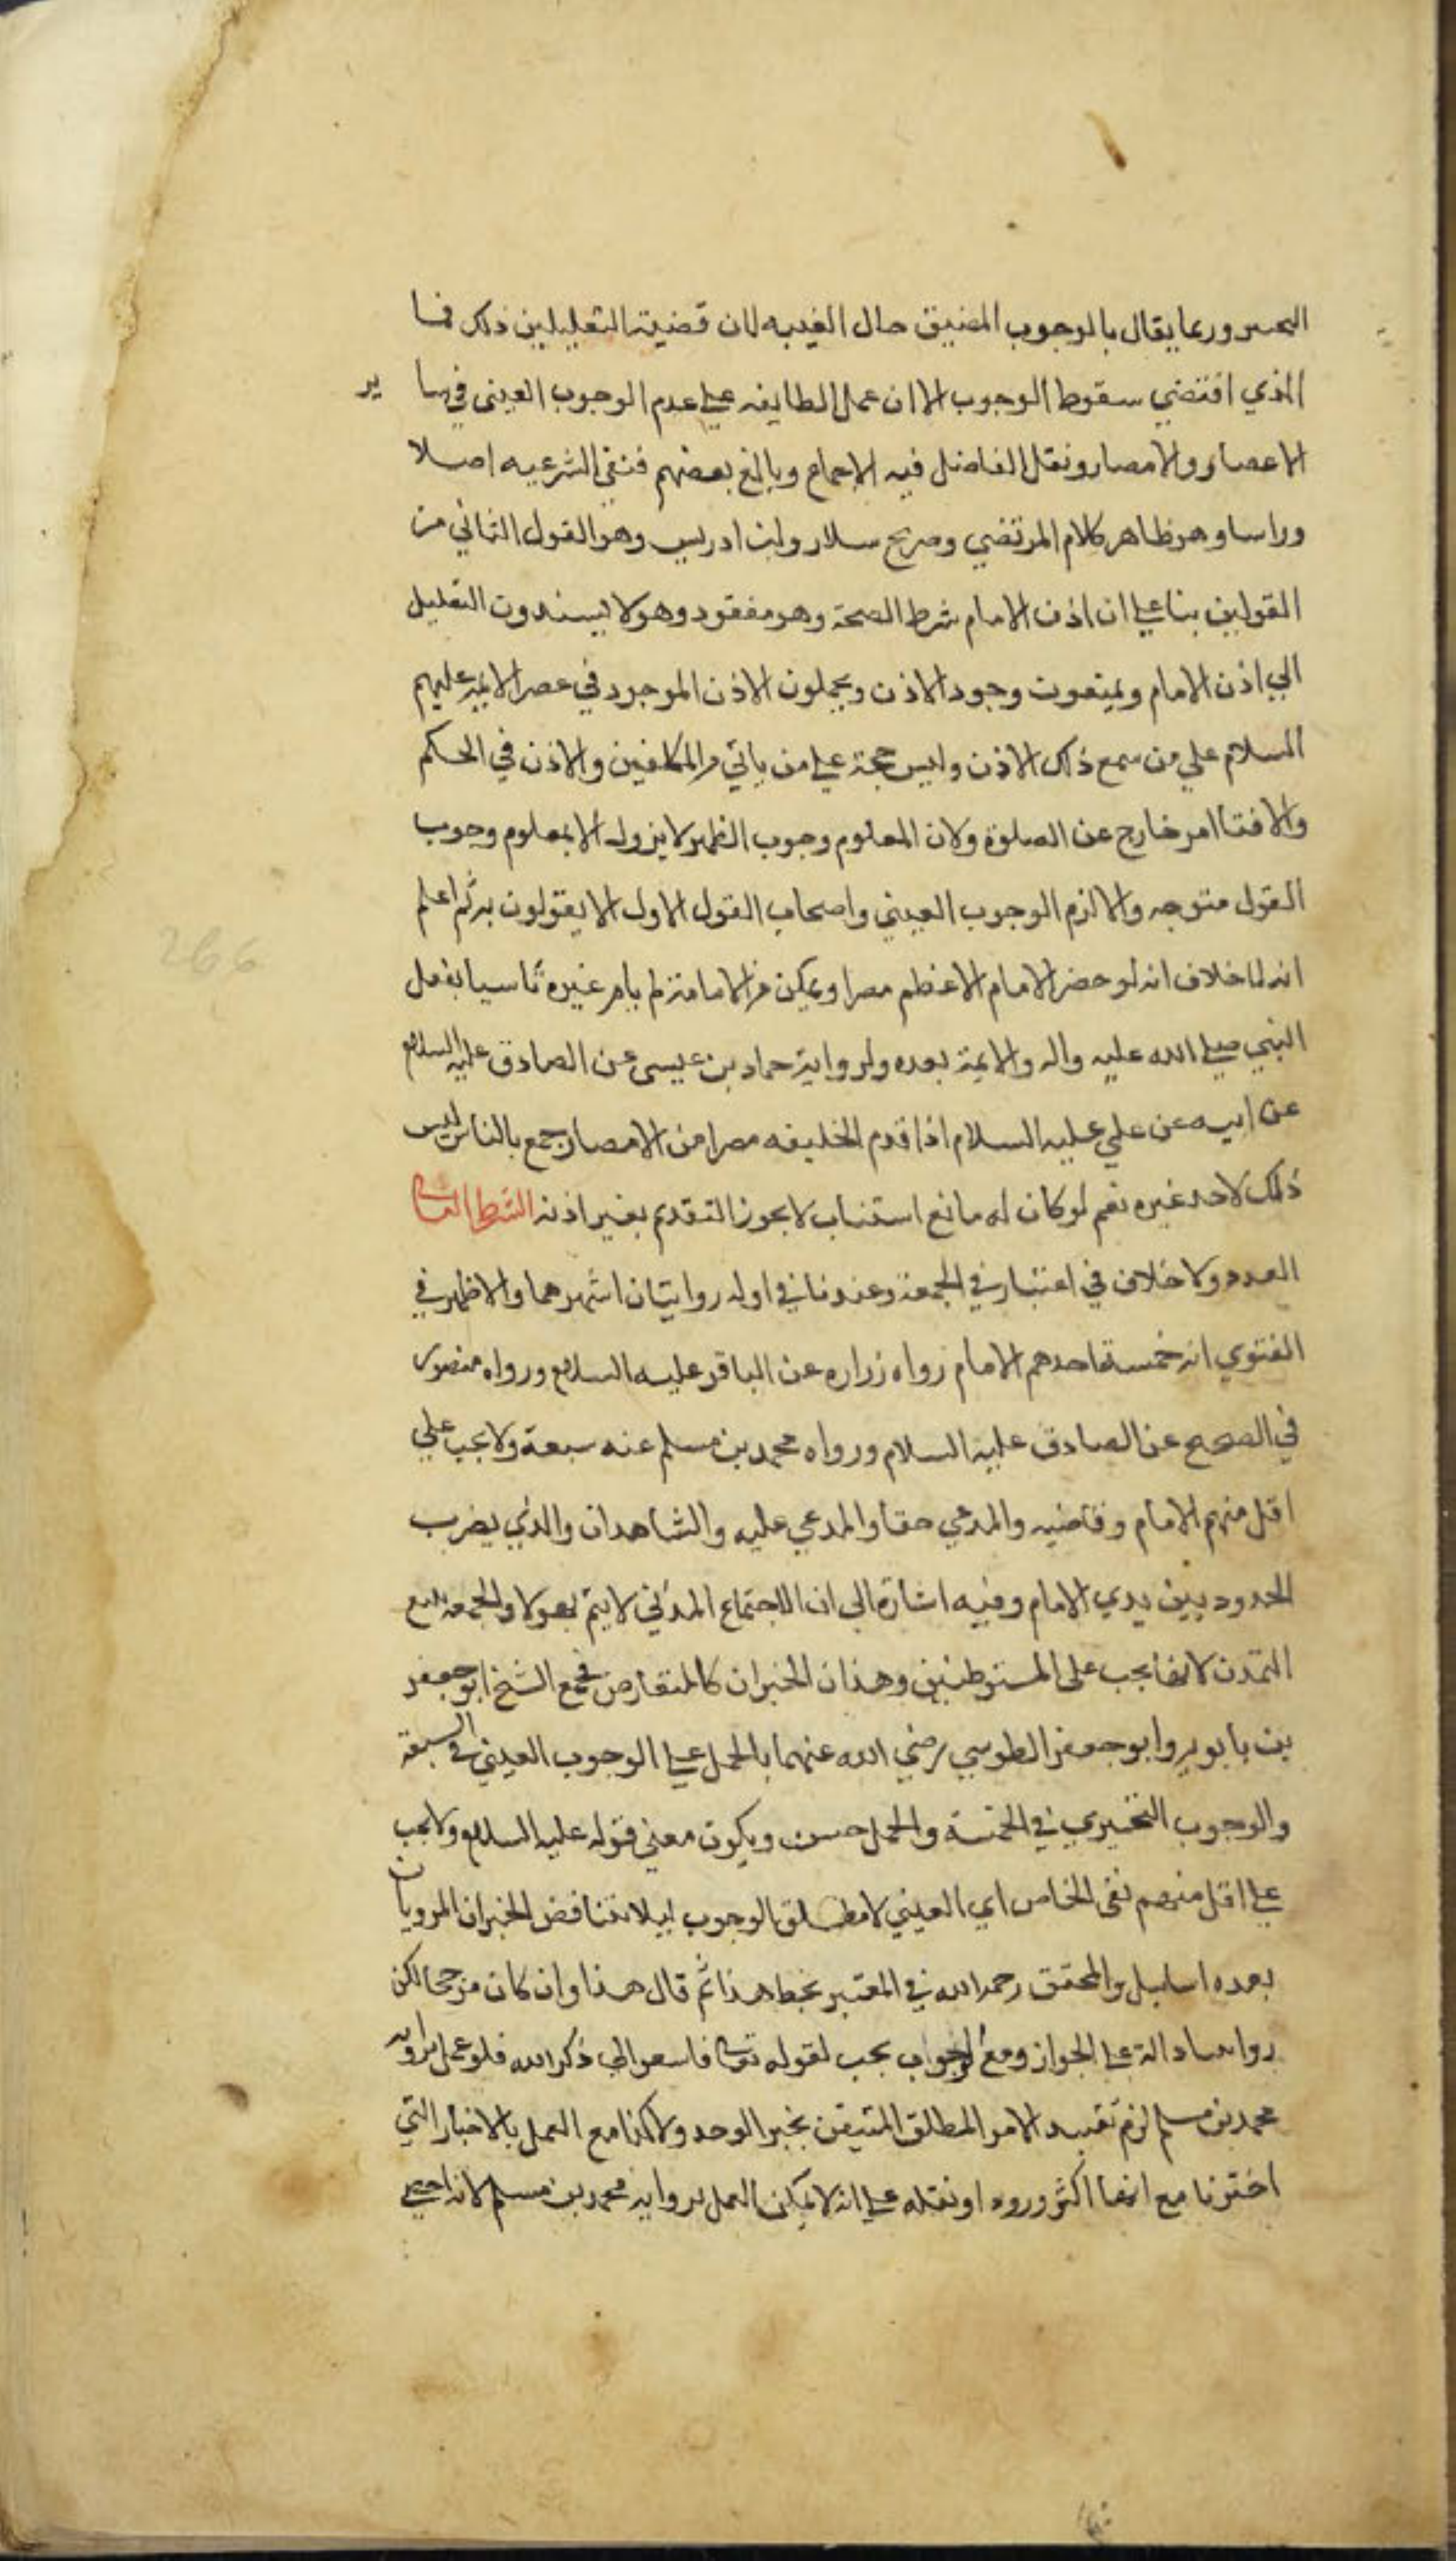 العسر وربما يقال بالوجوب المضيق حال الغيبه لان قضية التعليلين ذلك فما
الذي اقتضي سقوط الوجوب الا ان عمل الطايفه علي عدم الوجوب العيني في سا ير
الاعصار والامصار ونقل الفاضل فيه الاجماع وبالغ بعضهم فنفي الشرعيه اصلا
وراسا وهو ظاهر كلام المرتضي وصريح سلار وابن ادريس وهو القول الثاني من
القولين بنا علي ان اذن الامام شرط الصحة وهو مفقود وهولا يسندون التعليل
الي اذن الامام ويمنعون وجود الاذن ويحملون الاذن الموجود في عصر الايمة عليهم
السلام علي من سمع ذلك الاذن وليس حجة علي من ياتي من المكلفين والاذن في الحكم
والافتا امر خارج عن الصلوة ولان المعلوم وجوب الظهر لا يزول الا بمعلوم وجوب
القول متوجه والا لزم الوجوب العيني واصحاب القول الاول لا يقولون به ثم اعلم
انه لا خلاف انه لو حضر الامام الاعظم مصرا وتمكن من الامامة لم يامر غيره تاسيا بفعل
النبي صلي الله عليه واله والايمة بعده ولرواية حماد بن عيسى عن الصادق عليه السلام
عن ابيه عن علي عليه السلام اذا قدم الخليفه مصرا من الامصار جمع بالناس ليس
ذلك لاحد غيره نعم لو كان له مانع استناب لا يجوز التقدم بغير اذنه الشرط الثاني
العدد ولا خلاف في اعتباره في الجمعة وعندنا في اوله روايتان اشهرهما والاظهر في
الفتوي انه خمسة احدهم الامام رواه زراره عن الباقر عليه السلام ورواه منصور
في الصحيح عن الصادق عليه السلام ورواه محمد بن مسلم عنه سبعة ولا يجب علي
اقل منهم الامام وقاضيه والمدعي حقا والمدعي عليه والشاهدان والذي يضرب
الحدود بين يدي الامام وفيه اشارة الى ان الاجتماع المدني لا يتم بهولا والجمعه تابع
التمدن لانها يجب على المستوطنين وهذان الخبران كالمتعارض فجمع الشيخ ابو جعفر
بن بابويه وابو جعفر الطوسي رضي الله عنهما بالحمل علي الوجوب العيني في السبعة
والوجوب التخييري في الخمسة والحمل حسن ويكون معني قوله عليه السلام ولا يجب
علي اقل منهم نفي الخاص اي العيني لا مطلق الوجوب ليلا تتناقض الخبران المرويان
بعده والمحقق رحمه الله في المعتبر بخط هذا ثم قال هذا وان كان مرجحا لكن
روايتنا دالة علي الجواز ومع الجواب يجب لقوله تعالي فاسعوا الي ذكر الله فلو عمل برواية
محمد بن مسلم لزم تقييد الامر المطلق المتيقن بخبر الوحد ولا كذا مع العمل بالاخبار التي
اخترنا مع انها اكثر ورود او نقله علي انه لا يمكن العمل برواية محمد بن مسلم لانه احصي